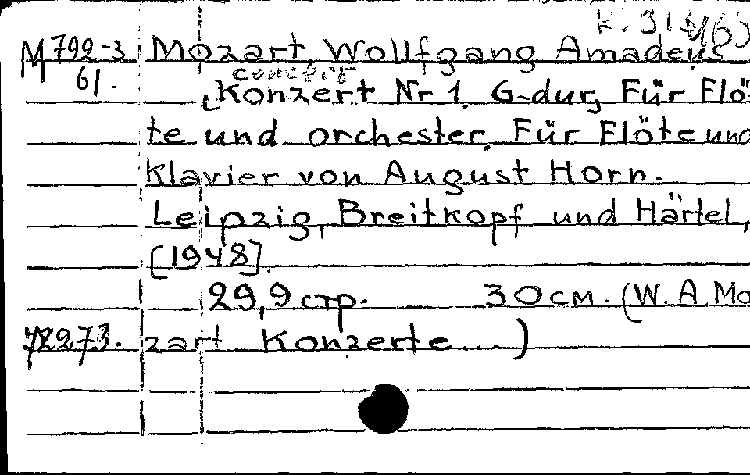 M 792-3 Mozart, Wollfgang Amadeus
61. [Konzert Nr 1. G-dur, Für Flö
te und orchester. Für Flöte und
Klavier von August Horn.
Leipzig, Breitkopf und Härtel,
[1948].
29,9 стр. 30 см. (W. A Mo
zart Konzerte...)